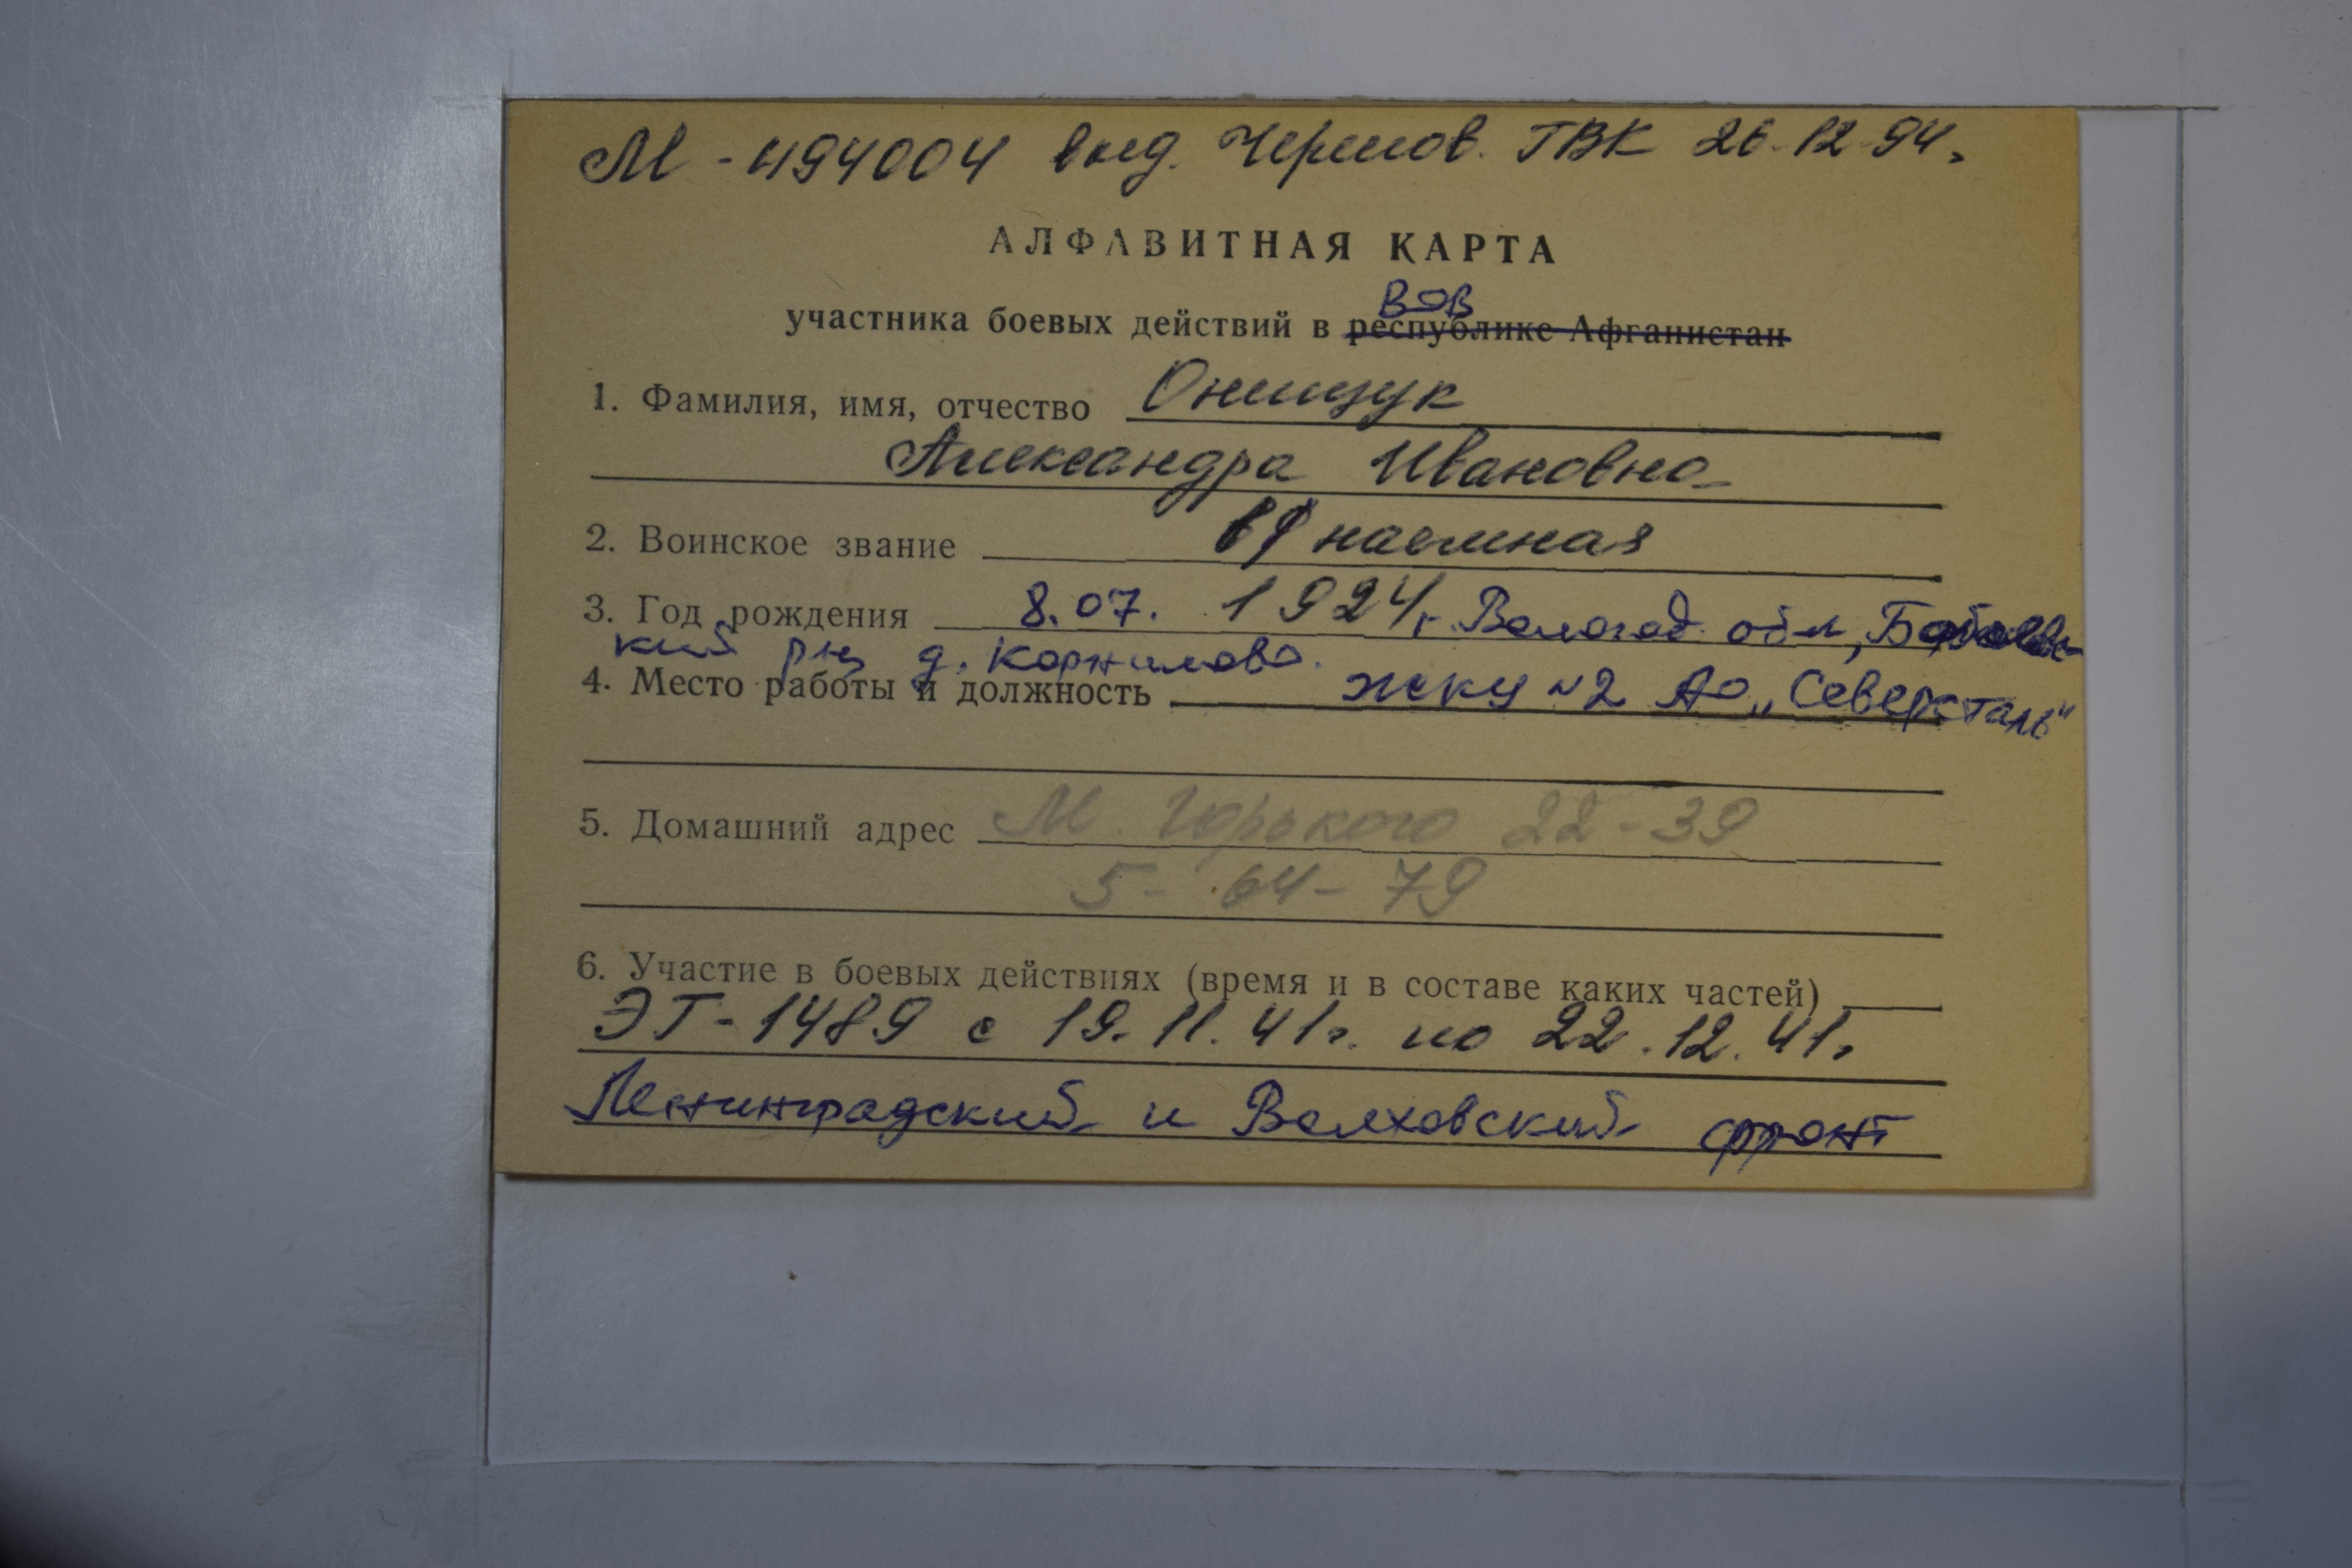 М-494004 выд. Черепов. ГВК 26.12.94г
АЛФАВИТНАЯ КАРТА
ВОВ
участника боевых действий в республике Афганистан
1. Фамилия, имя, отчество Онищук
Александра Ивановна
2. Воинское звание в/наемная
3. Год рождения 8.07. 1924г. Вологод. обл, Бабаевс-
кий р-н д. Корнилово.
4. Место работы и должность ЖКУ №2 АО „Северсталь"
5. Домашний адрес М. Горького 22-39
5-64-79
6. Участие в боевых действиях (время и в составе каких частей)
ЭГ-1489 с 19.11.41г. по 22.12.41г
Ленинградский и Волховский фронт